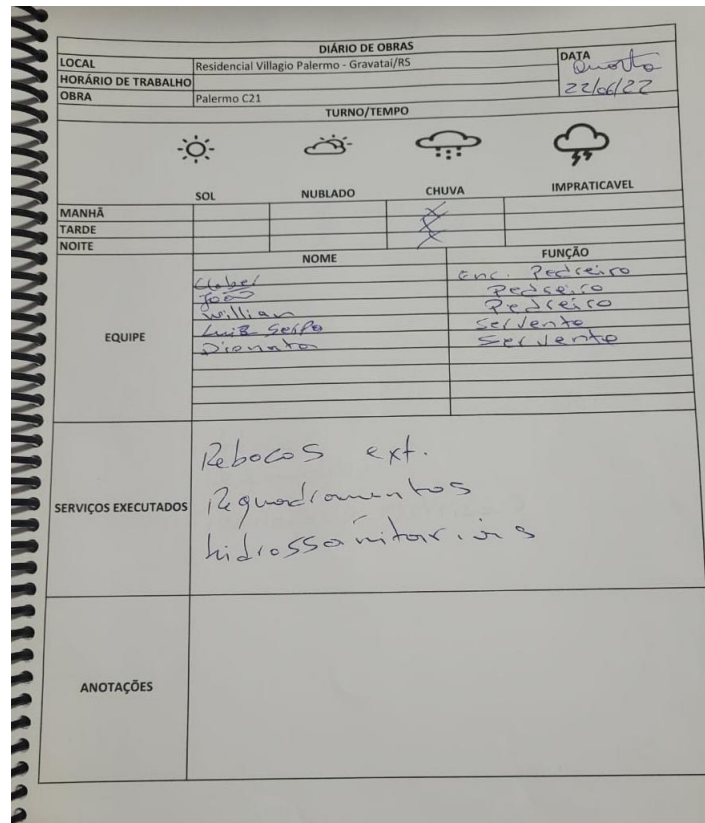 DIÁRIO DE OBRAS
LOCAL Residencial Villagio Palermo - Gravataí/RS DATA Quarta
HORÁRIO DE TRABALHO 22/06/22
OBRA Palermo C21
TURNO/TEMPO
SOL NUBLADO CHUVA IMPRATICAVEL
MANHÃ X
TARDE X
NOITE
NOME FUNÇÃO
Cleber Enc. Pedreiro
João Pedreiro
Willian Pedreiro
Luiz Serpa Servente
EQUIPE
Dionata Servente
SERVIÇOS EXECUTADOS
Rebocos ext.
Requadramentos
hidrossanitários
ANOTAÇÕES